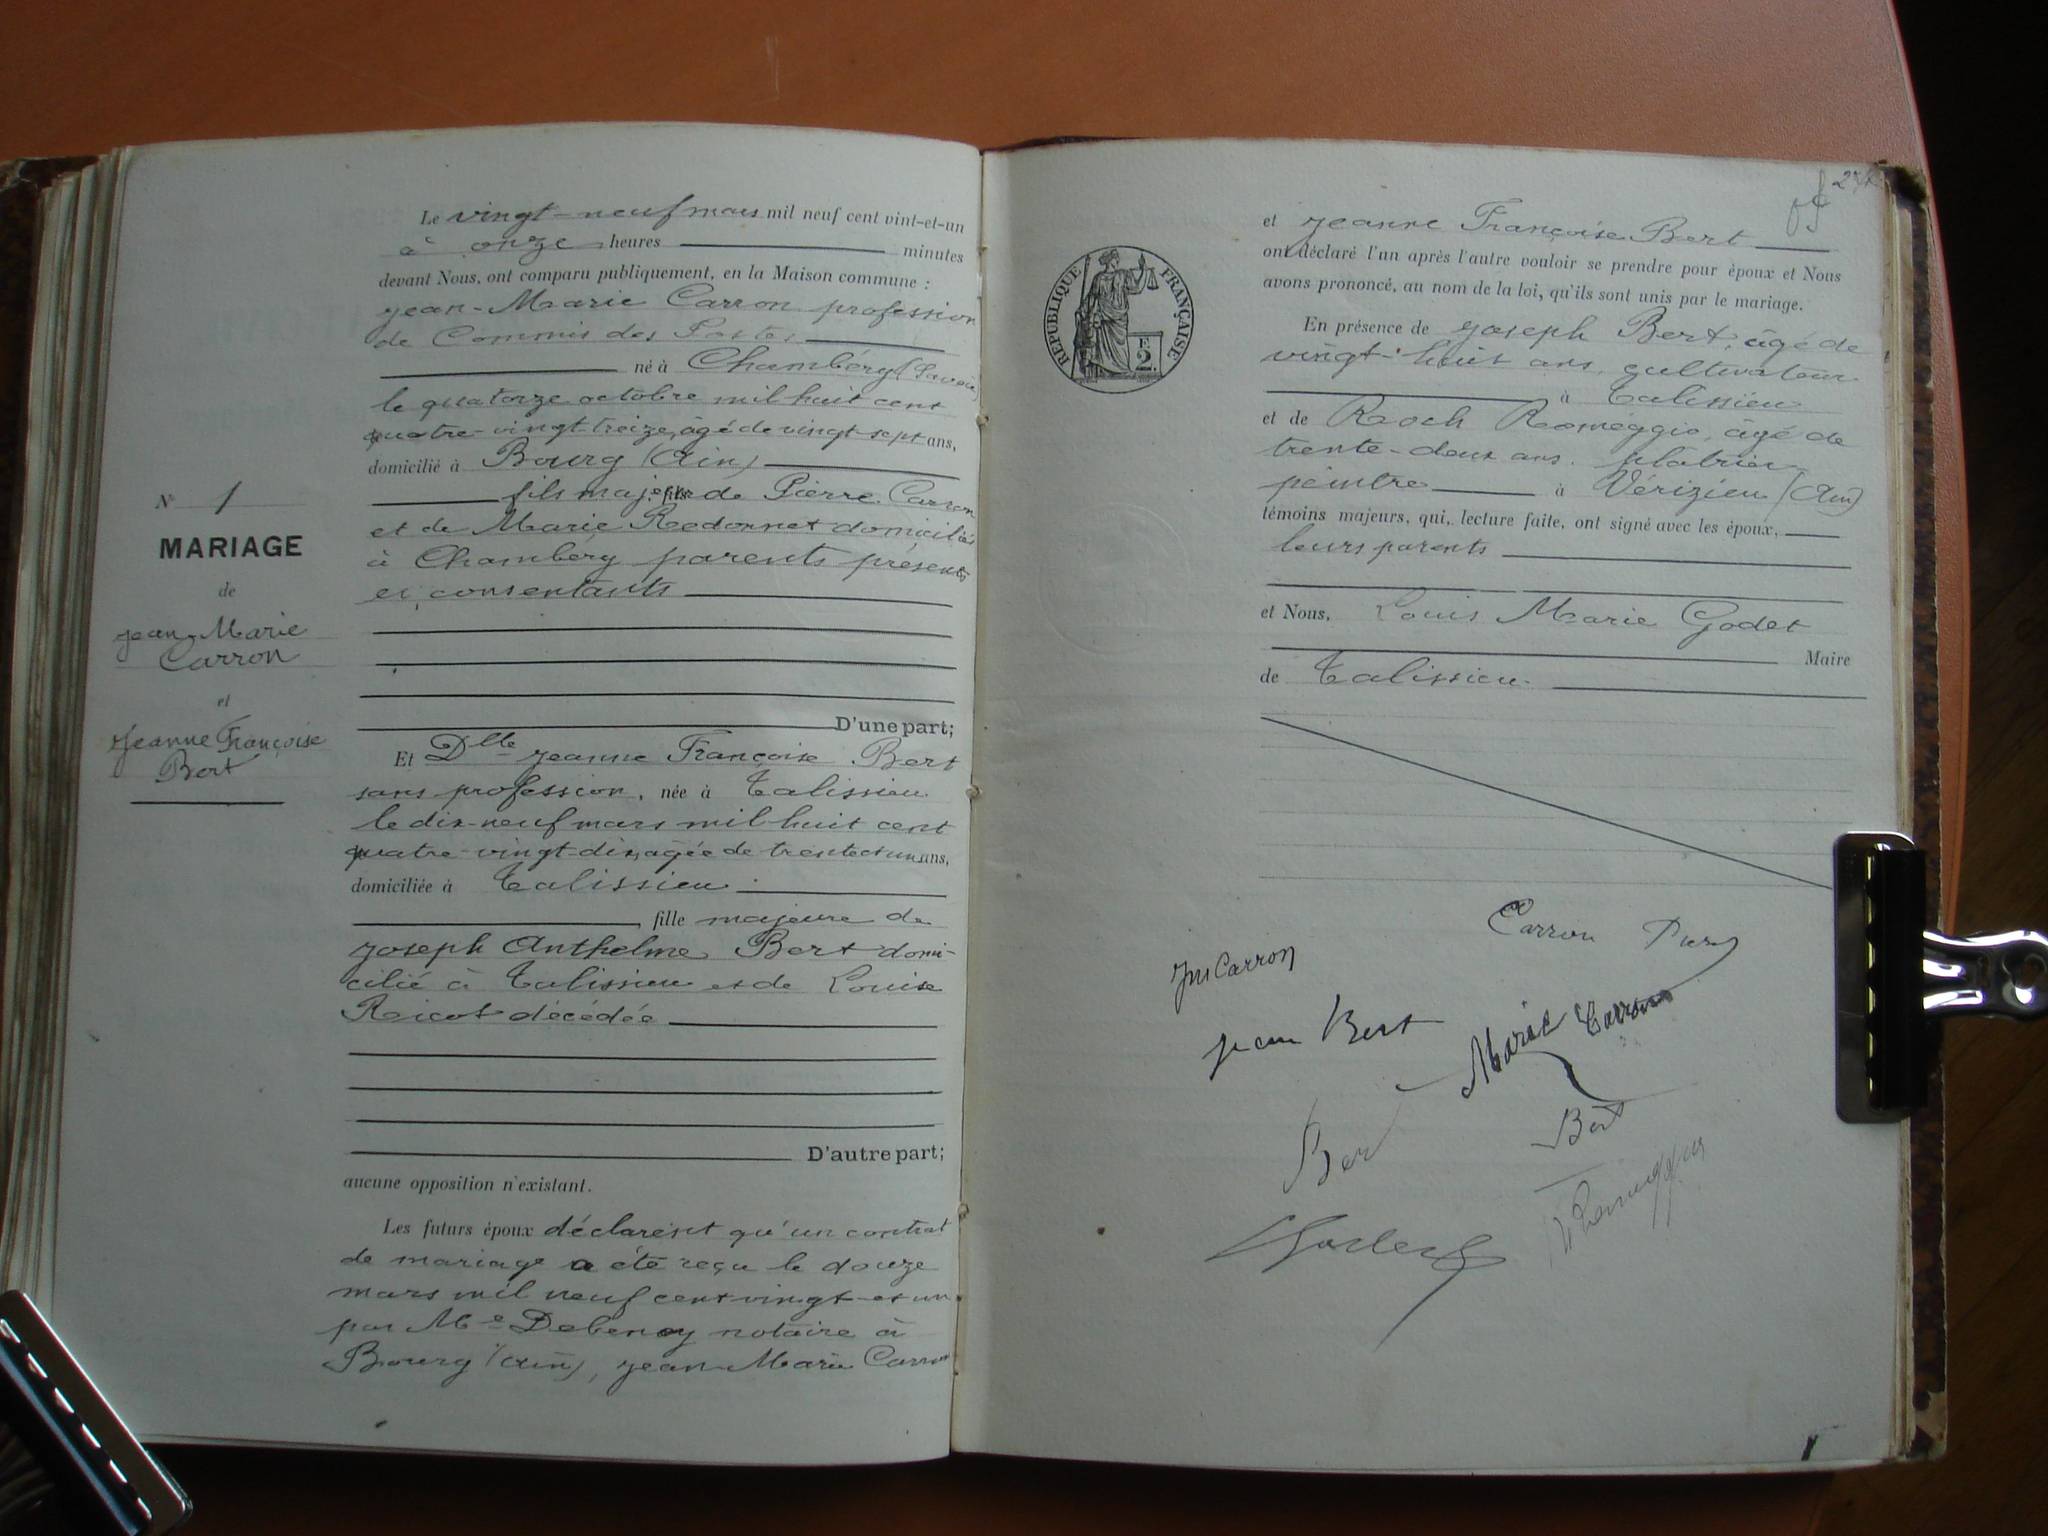 N° 1
MARIAGE
de
Jean-Marie
Carron
et
Jeanne Françoise
Bert
Le vingt-neuf mars mil neuf cent vint-et-un
à onze heures minutes
devant Nous, ont comparu publiquement, en la Maison commune :
Jean-Marie Carron profession
de Commis des Postes
né à Chambéry (Savoie)
le quatorze octobre mil huit cent
quatre-vingt-treize, âgé de vingt-sept ans,
domicilié à Bourg (Ain)
fils majeur de Pierre Carron
et de Marie Redonnet domiciliés
à Chambéry parents présents
et consentants
D'une part;
Et Dlle Jeanne Françoise Bert
sans profession, née à Talissieu
le dix-neuf mars mil huit cent
quatre-vingt-dix, agée de trente et un ans,
domiciliée à Talissieu
fille majeure de
Joseph Anthelme Bert domi-
cilié à Talissieu et de Louise
Ricot décédée
D'autre part;
aucune opposition n'existant.
Les futurs époux déclarent qu'un contrat
de mariage a été reçu le douze
mars mil neuf cent vingt-et-un
par Me Debeney notaire à
Bourg (Ain), Jean-Marie Carron
RÉPUBLIQUE FRANÇAISE
F.
2.
et Jeanne Françoise Bert
ont déclaré l'un après l'autre vouloir se prendre pour époux et Nous
avons prononcé, au nom de la loi, qu'ils sont unis par le mariage.
En présence de Joseph Bert, âgé de
vingt-huit ans, cultivateur
à Talissieu
et de Roch Roméggio, âgé de
trente-deux ans. plâtrier-
peintre à Vérizieu (Ain)
témoins majeurs, qui, lecture faite, ont signé avec les époux,
leurs parents
et Nous, Louis Marie Godet
Maire
de Talissieu
Carron
Jm Carron
Jean Bert
Marie Carron
Bert
Bert